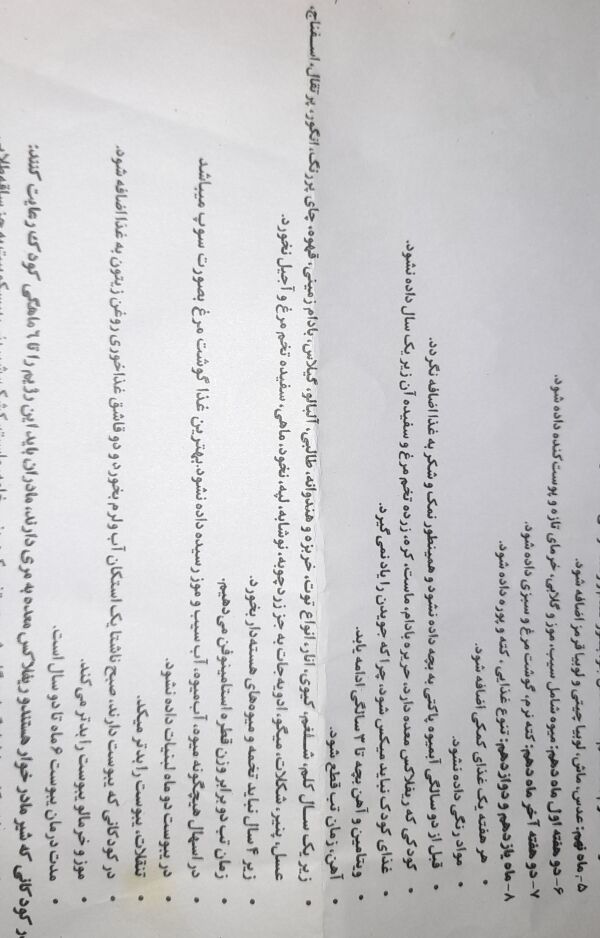 ۵- ماه نهم: عدس، ماش، لوبیا چیتی و لوبیا قرمز اضافه شود.
۶- دو هفته اول ماه دهم: میوه شامل سیب، موز و گلابی، خرمای تازه و پوست کنده داده شود.
۷- دو هفته آخر ماه دهم: کته نرم، گوشت مرغ و سبزی داده شود.
۸- ماه یازدهم و دوازدهم: تنوع غذایی، کته و پوره داده شود.
• هر هفته یک غذای کمکی اضافه شود.
• مواد رنگی داده نشود.
• قبل از دو سالگی آبمیوه پاکتی به بچه داده نشود و همینطور نمک و شکر به غذا اضافه نگردد.
• کودکی که ریفلاکس معده دارد، حریره بادام، ماست، کره، زرده تخم مرغ و سفیده آن زیر یک سال داده نشود.
• غذای کودک نباید میکس شود، چرا که جویدن را یاد نمی گیرد.
• ویتامین و آهن بچه تا ۳ سالگی ادامه یابد.
• آهن، زمان تب قطع شود.
• زیر یک سال کلم، شلغم، کیوی، انار، انواع توت، خربزه و هندوانه، طالبی، آلبالو، گیلاس، بادام زمینی، قهوه، چای پررنگ، انگور، پرتقال، اسفناج،
عسل، پنیر، شکلات، میگو، ادویه جات به جز زردچوبه، نوشابه، لپه، نخود، ماهی، سفیده تخم مرغ و آجیل نخورد.
• زیر ۴ سال نباید تخمه و میوه‌های هسته‌دار بخورد.
• زمان تب دو برابر وزن قطره استامینوفن می‌دهیم.
• در اسهال هیچگونه میوه، آب‌میوه، آب سیب و موز رسیده داده نشود. بهترین غذا گوشت مرغ بصورت سوپ میباشد
• در یبوست دو ماه لبنیات داده نشود.
• تنقلات، یبوست را بدتر میکند.
• در کودکانی که یبوست دارند، صبح ناشتا یک استکان آب ولرم بخورد و دو قاشق غذاخوری روغن زیتون به غذا اضافه شود.
• موز و خرمالو یبوست را بدتر می‌کند.
• مدت درمان یبوست ۶ ماه تا دو سال است.
در کودکانی که شیر مادر خوار هستند و ریفلاکس معده به مری دارند، مادران باید این رژیم را تا ۶ ماهگی کودک رعایت کنند: